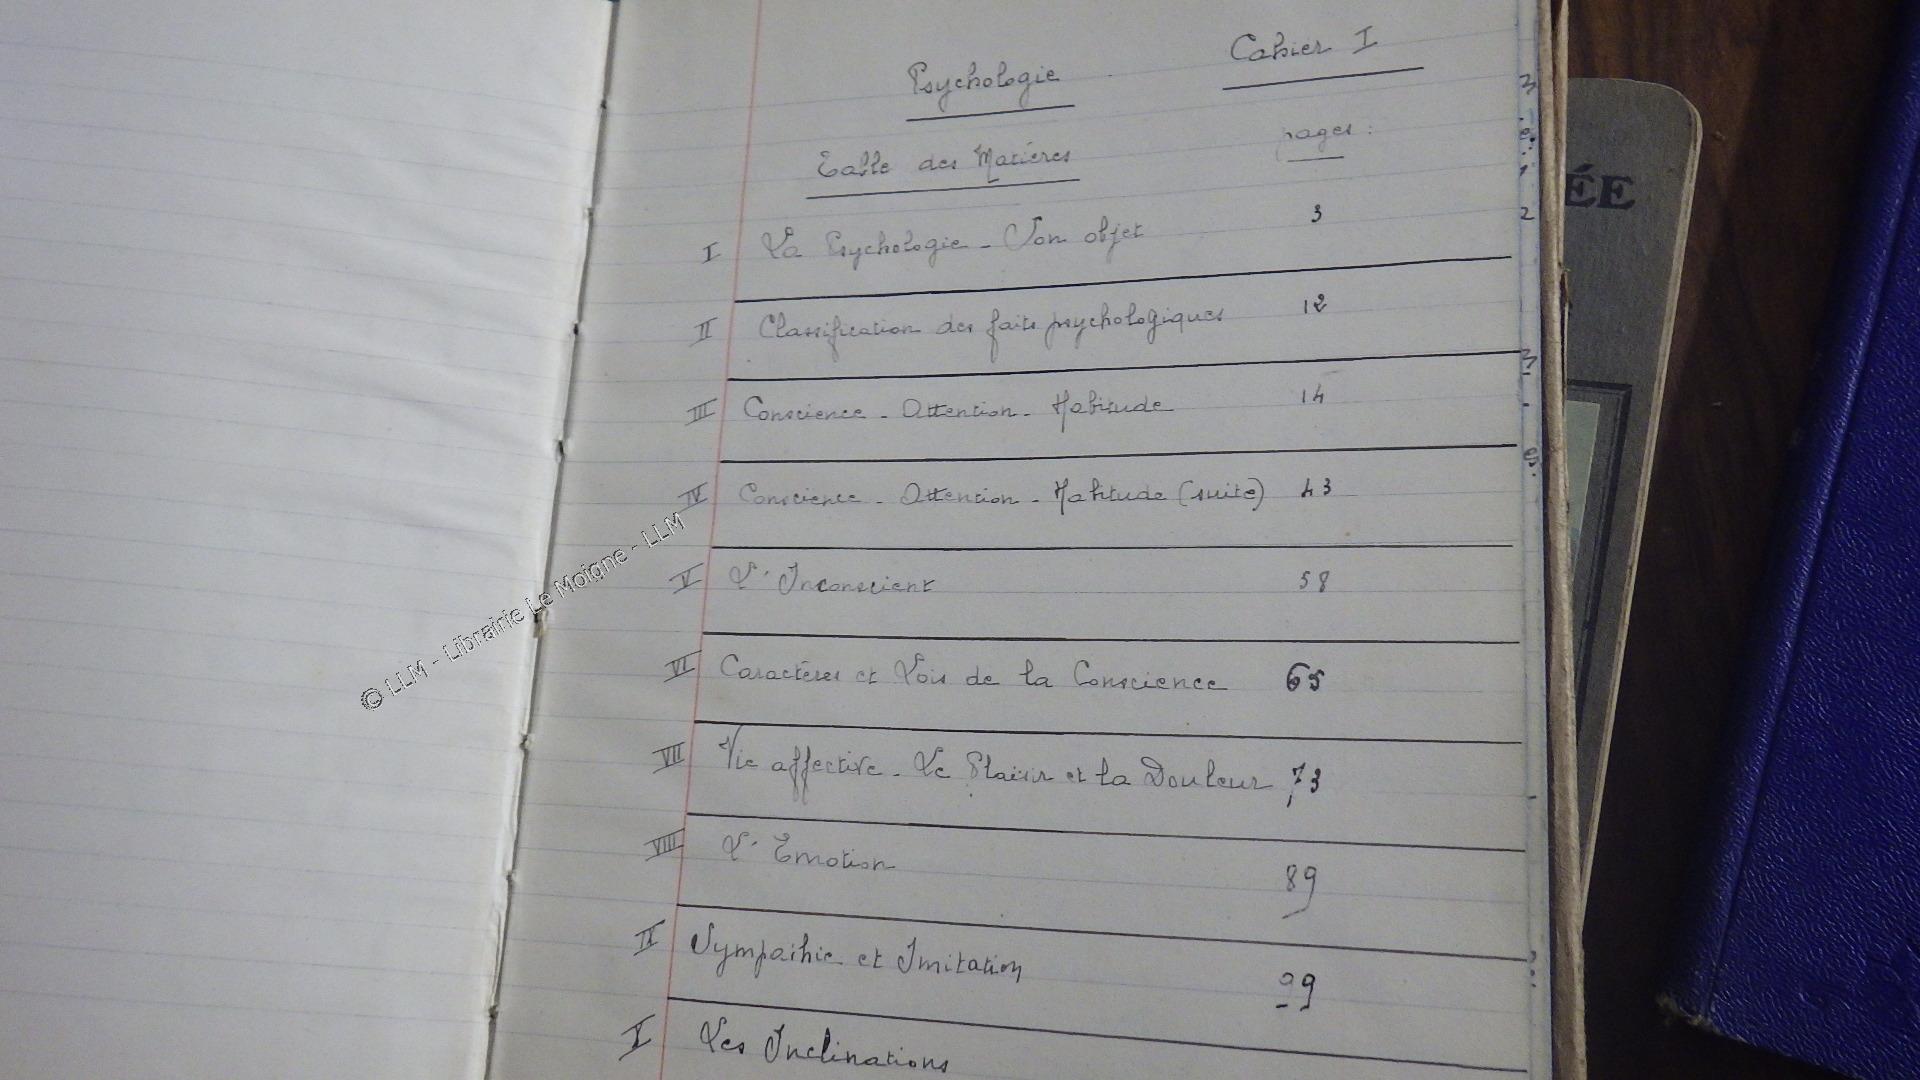 Psychologie Cahier I
Table des Matières pages :
I La Psychologie - Son objet 3
II Classification des faits psychologiques 12
III Conscience - Attention - Habitude 14
IV Conscience - Attention - Habitude (suite) 43
V L'Inconscient 58
VI Caractères et Lois de la Conscience 65
VII Vie affective - Le Plaisir et la Douleur 73
VIII L'Emotion 89
IX Sympathie et Imitation 99
X Les Inclinations
© LLM - Librairie Le Moigne - LLM
ÉE